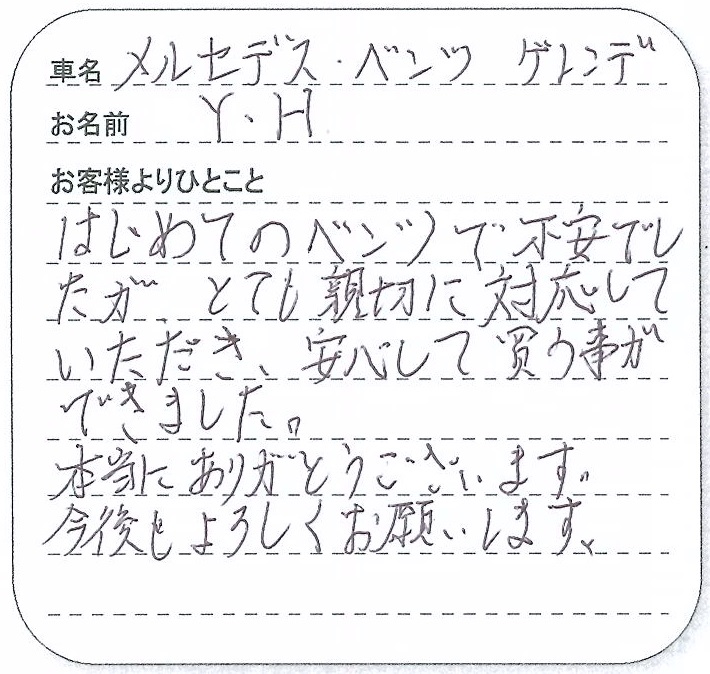 車名 メルセデス・ベンツ ゲレンデ
お名前 Y.H
お客様よりひとこと
はじめてのベンツで不安でし
たが、とても親切に対応して
いただき、安心して買う事が
できました。
本当にありがとうございます。
今後もよろしくお願いします。